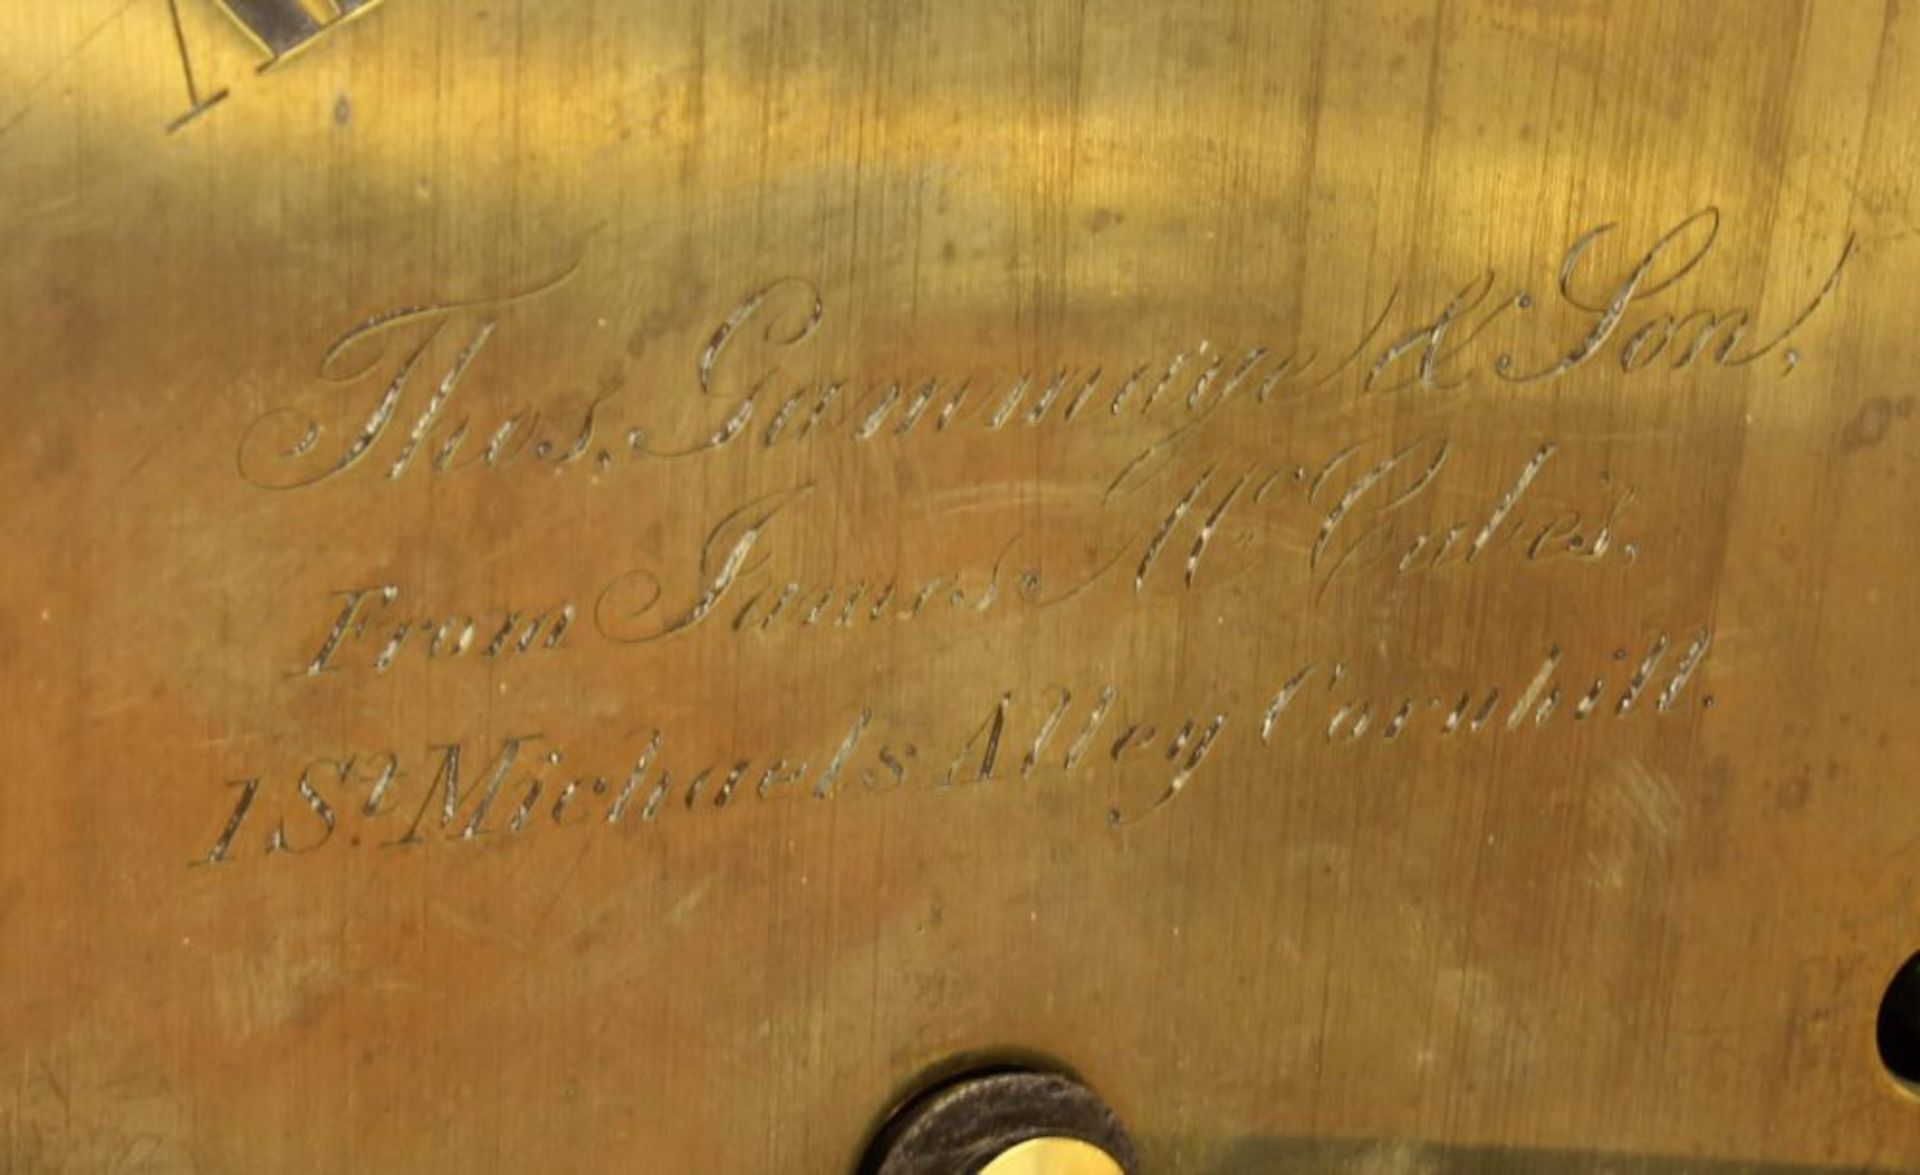 Thos. Gammage & Son,
From James McCabe's,
1 St. Michaels Alley Cornhill.